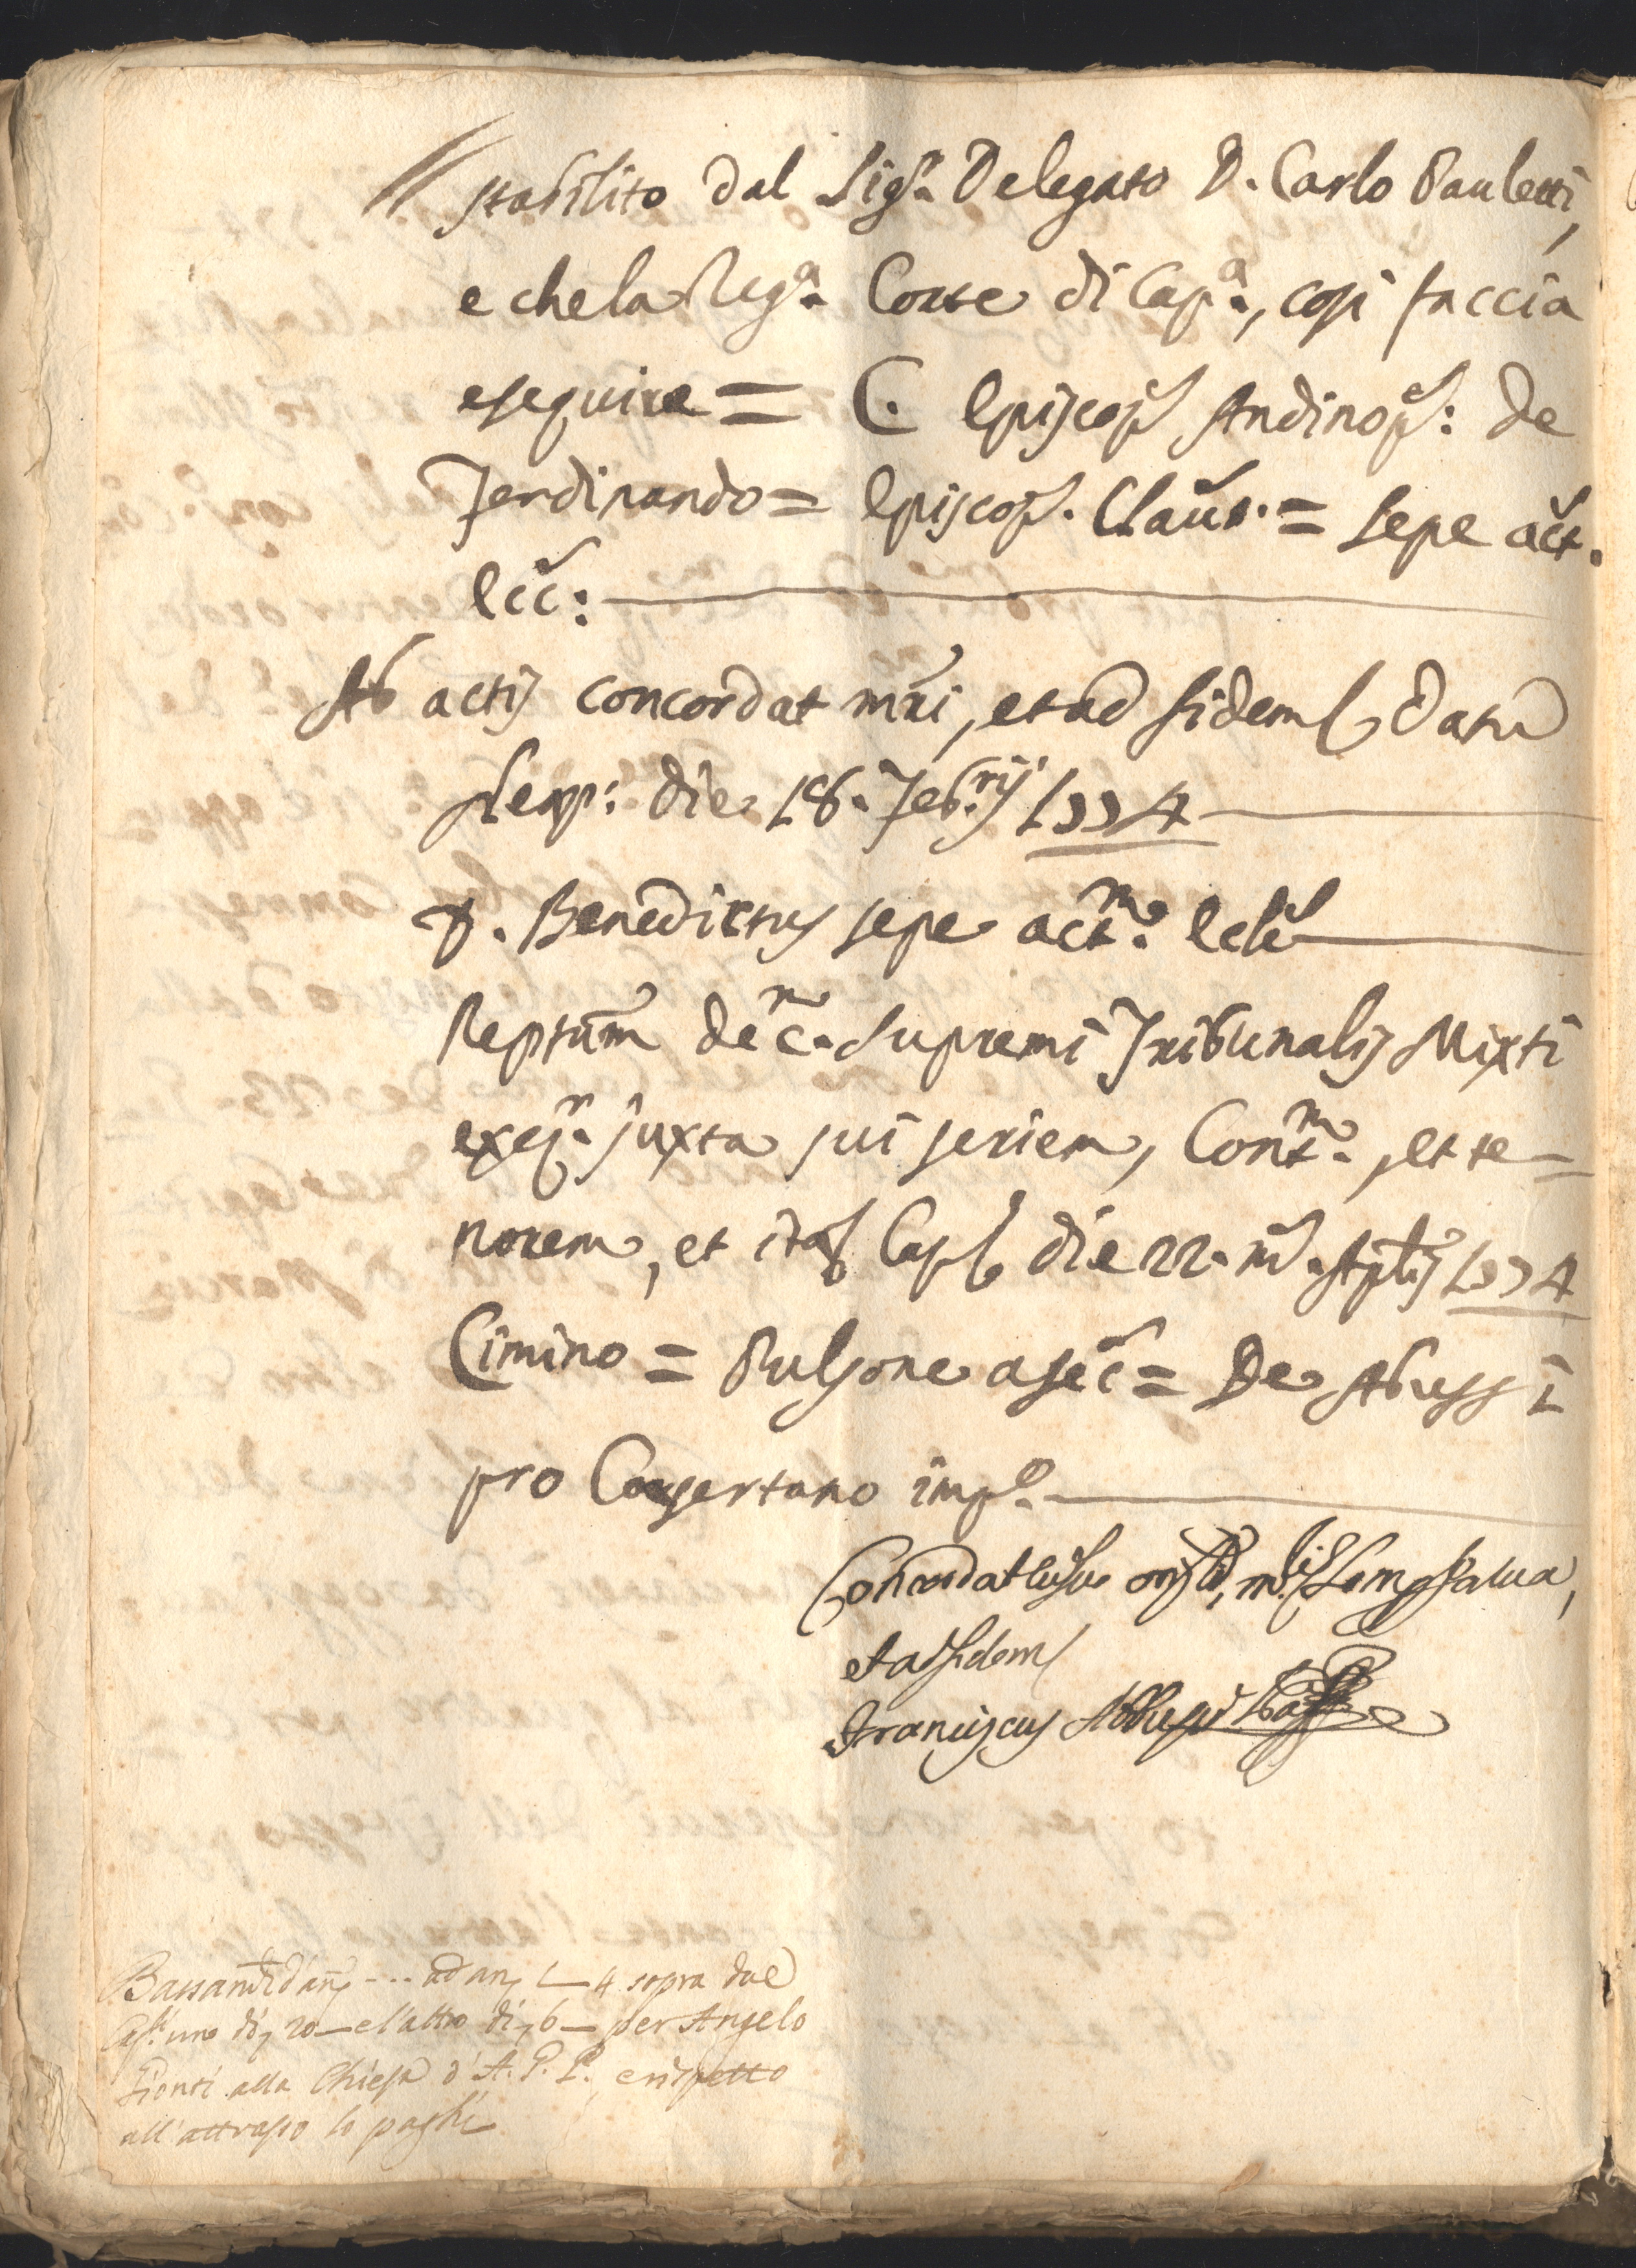 stabilito dal Sig.r Delegato D. Carlo Pauletti,
e che la Reg.a Corte di Cap.a, così faccia
eseguire = C. Episcop.s Andinop.s: de
Ferdinando = Episcop.s. Claus. = Sepe act.
Ecc:
Ab actis concordat mri, et ad fidem Datu
Neap: die 18. Feb.rij 1774
D. Benedictus Sepe act.m
Reptum dec.m Supremi Tribunalis Mixti
exeq.r juxta sui seriem, Cont.m, et te-
norem, et itaq Cap die 22. m.s Aplis 1774
Cimino = Pulsone asec = De Abussi
pro Consertano imp.o
Concordat
et ad fidem
Franciscus
ad an 4 sopra due
uno di 20 e l'altro di 6 per Angelo
Fionti alla Chiesa d' A. P. P. e rispetto
all' attrasso lo paghi